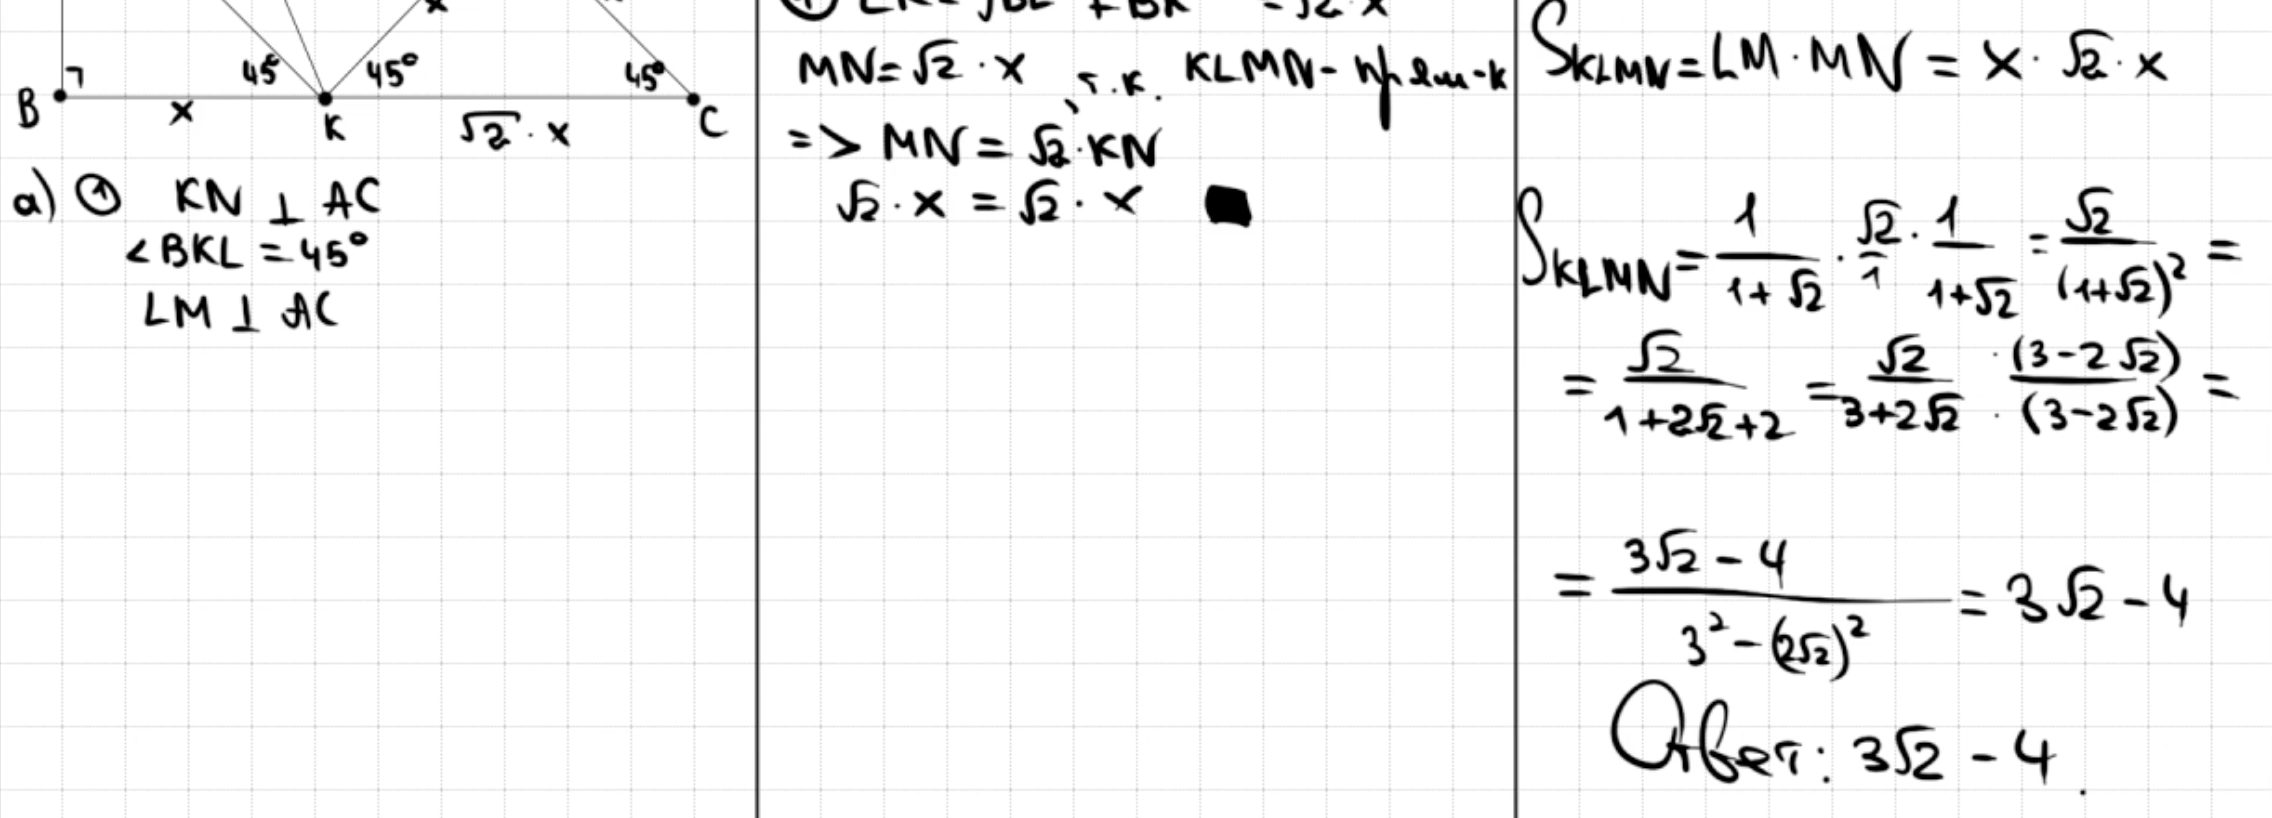 45° 45° 45°
B x K √2 · x C
a) ① KN ⊥ AC
∠BKL = 45°
LM ⊥ AC
MN = √2 · x , т.к. KLMN - пр-к
=> MN = √2 · KN
√2 · x = √2 · x ■
S_KLMN = LM · MN = x · √2 · x
S_KLMN = 1/(1+√2) · √2/1 · 1/(1+√2) = √2/(1+√2)² =
= √2/(1+2√2+2) = √2/(3+2√2) · (3-2√2)/(3-2√2) =
= (3√2 - 4)/(3² - (2√2)²) = 3√2 - 4
Ответ: 3√2 - 4.